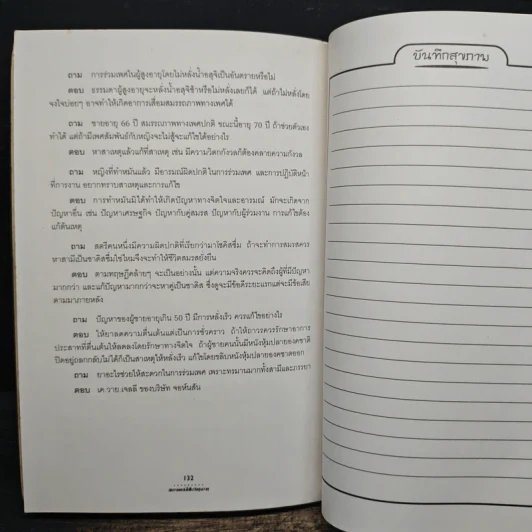 ถาม การร่วมเพศในผู้สูงอายุโดยไม่หลั่งน้ำอสุจิเป็นอันตรายหรือไม่
ตอบ ธรรมดาผู้สูงอายุจะหลั่งน้ำอสุจิช้าหรือไม่หลั่งเลยก็ได้ แต่ถ้าไม่หลั่งโดย
จงใจบ่อยๆ อาจทำให้เกิดอาการเสื่อมสมรรถภาพทางเพศได้
ถาม ชายอายุ 66 ปี สมรรถภาพทางเพศปกติ ขณะนี้อายุ 70 ปี ถ้าช่วยตัวเอง
ทำได้ แต่ถ้ามีเพศสัมพันธ์กับหญิงจะไม่สู้จะแก้ไขได้อย่างไร
ตอบ หาสาเหตุแล้วแก้ที่สาเหตุ เช่น มีความวิตกกังวลก็ต้องคลายความกังวล
ถาม หญิงที่ทำหมันแล้ว มีอารมณ์ผิดปกติในการร่วมเพศ และการปฏิบัติหน้า
ที่การงาน อยากทราบสาเหตุและการแก้ไข
ตอบ การทำหมันมิได้ทำให้เกิดปัญหาทางจิตใจและอารมณ์ มักจะเกิดจาก
ปัญหาอื่น เช่น ปัญหาเศรษฐกิจ ปัญหากับคู่สมรส ปัญหากับผู้ร่วมงาน การแก้ไขต้อง
แก้ต้นเหตุ
ถาม สตรีคนหนึ่งมีความผิดปกติที่เรียกว่ามาโซคิสซึ่ม ถ้าจะทำการสมรสควร
หาสามีเป็นซาดิสซึ่มใช่ไหมจึงจะทำให้ชีวิตสมรสยั่งยืน
ตอบ ตามทฤษฎีคล้ายๆ จะเป็นอย่างนั้น แต่ความจริงควรจะคิดถึงผู้ที่มีปัญหา
มากกว่า และแก้ปัญหามากกว่าจะหาคู่เป็นซาดิส ซึ่งดูจะมีข้อดีระยะแรกแต่จะมีข้อเสีย
ตามมาภายหลัง
ถาม ปัญหาของผู้ชายอายุเกิน 50 ปี มีการหลั่งเร็ว ควรแก้ไขอย่างไร
ตอบ ให้ยาลดความตื่นเต้นแต่เป็นการชั่วคราว ถ้าให้ถาวรควรรักษาอาการ
ประสาทที่ตื่นเต้นให้ลดลงโดยรักษาทางจิตใจ ถ้าผู้ชายคนนั้นมีหนังหุ้มปลายองคชาติ
ปิดอยู่ถลกกลับไม่ได้ก็เป็นสาเหตุให้หลั่งเร็ว แก้ไขโดยขลิบหนังหุ้มปลายองคชาตออก
ถาม ยาอะไรช่วยให้สะดวกในการร่วมเพศ เพราะทรมานมากทั้งสามีและภรรยา
ตอบ เค.วาย.เจลลี ของบริษัท จอห์นสัน
132
บันทึกสุขภาพ